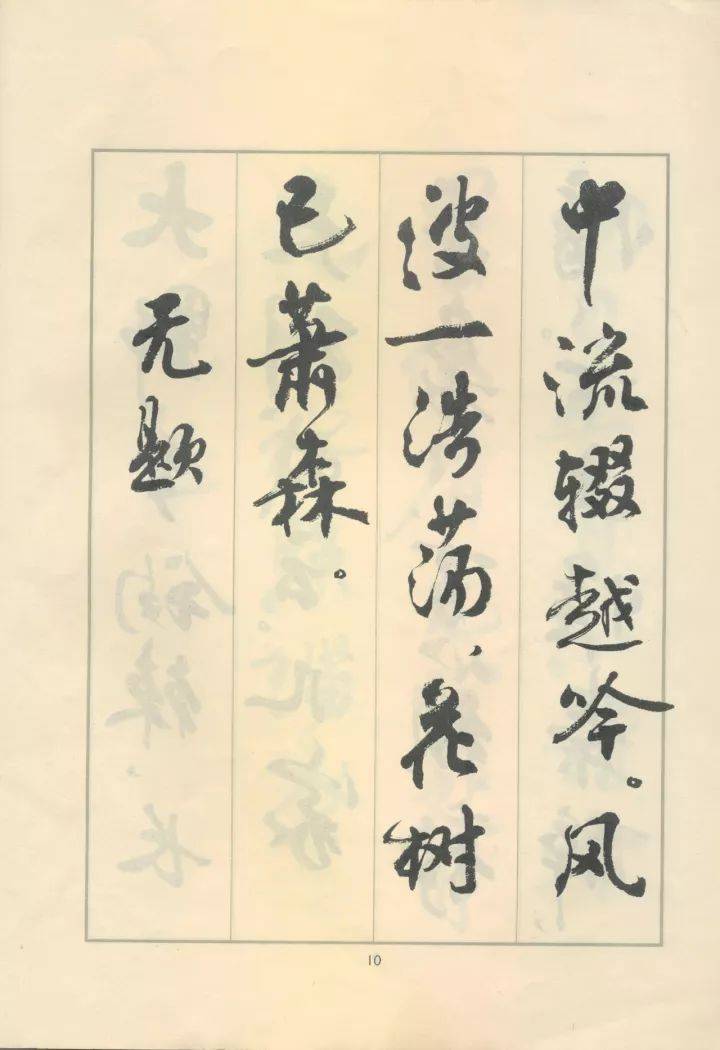 中流辍越吟。风
波一浩荡、花树
已萧森。
无题
10